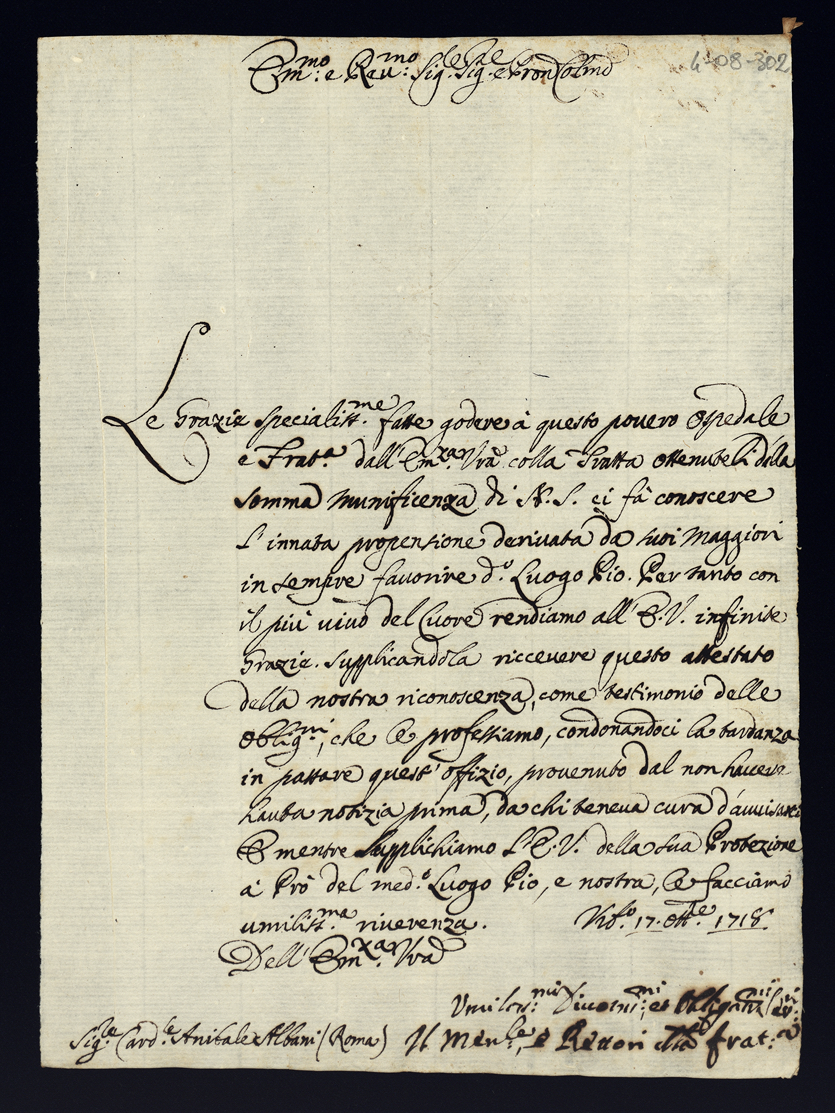 4-08-302
Em.mo e Rev.mo Sig.re Sig.re e Pron Colmo
Le Grazie specialiss.me fatte godere à questo povero Ospedale
e Frat.a dall'Em.za Vra colla Tratta ottenuteli dalla
somma munificenza di N. S. ci fà conoscere
l'innata propensione derivata da suoi Maggiori
in sempre favorire d.o Luogo Pio. Per tanto con
il più vivo del Cuore rendiamo all'E. V. infinite
Grazie. supplicandola riccevere questo attestato
della nostra riconoscenza, come testimonio delle
oblig.ni, che le professiamo, condonandoci la tardanza
in passare quest'offizio, provenuto dal non havere
hauta notizia prima, da chi teneva cura d'avvisarci
E mentre supplichiamo l'E. V. della sua Protezione
à Prò del med.o Luogo Pio, e nostra, le facciamo
umiliss.ma riverenza. Urb.o 17. Ott.re 1718.
Dell'Em.za Vra
Umiliss.mi Divotis.mi et Obligatis.mi Ser.ri
Sig.re Card.le Anibale Albani (Roma) Il Men.le, e Rettori della frat.a